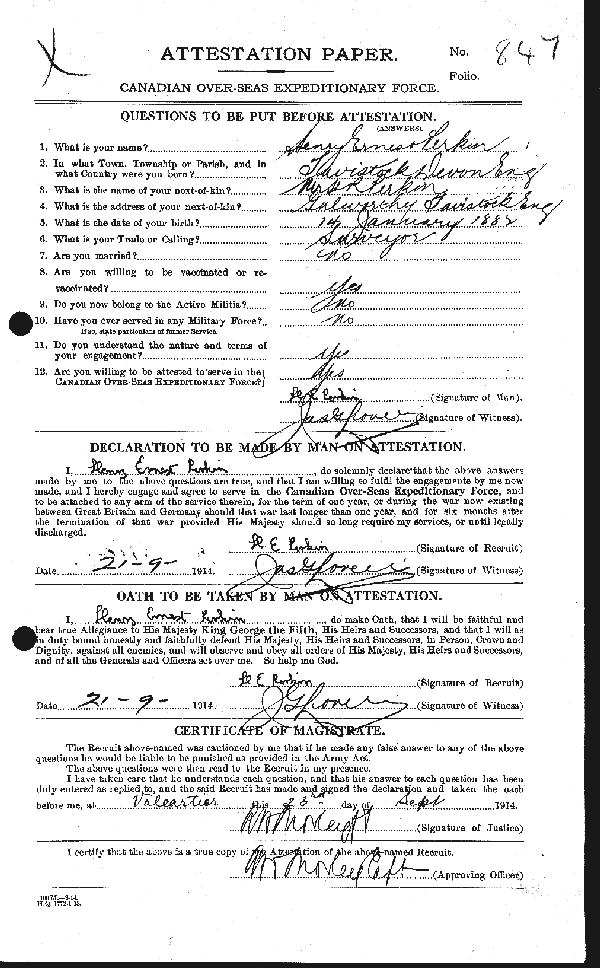 ATTESTATION PAPER.
No. 847
Folio.
CANADIAN OVER-SEAS EXPEDITIONARY FORCE.
QUESTIONS TO BE PUT BEFORE ATTESTATION.
(ANSWERS)
1. What is your name? Henry Ernest Perkin
2. In what Town, Township or Parish, and in
what Country were you born? Tavistock Devon Eng
3. What is the name of your next-of-kin? Perkin
4. What is the address of your next-of-kin? Tavistock Eng
5. What is the date of your birth? 14 January 1882
6. What is your Trade or Calling? Surveyor
7. Are you married? no
8. Are you willing to be vaccinated or re-
vaccinated? Yes
9. Do you now belong to the Active Militia? no
10. Have you ever served in any Military Force? no
If so, state particulars of former Service.
11. Do you understand the nature and terms of
your engagement? Yes
12. Are you willing to be attested to serve in the
CANADIAN OVER-SEAS EXPEDITIONARY FORCE? Yes
H E Perkin (Signature of Man).
Jas Glover (Signature of Witness).
DECLARATION TO BE MADE BY MAN ON ATTESTATION.
I, Henry Ernest Perkin, do solemnly declare that the above answers
made by me to the above questions are true, and that I am willing to fulfil the engagements by me now
made, and I hereby engage and agree to serve in the Canadian Over-Seas Expeditionary Force, and
to be attached to any arm of the service therein, for the term of one year, or during the war now existing
between Great Britain and Germany should that war last longer than one year, and for six months after
the termination of that war provided His Majesty should so long require my services, or until legally
discharged.
H E Perkin (Signature of Recruit)
Date 21-9- 1914. Jas Glover (Signature of Witness)
OATH TO BE TAKEN BY MAN ON ATTESTATION.
I, Henry Ernest Perkin, do make Oath, that I will be faithful and
bear true Allegiance to His Majesty King George the Fifth, His Heirs and Successors, and that I will as
in duty bound honestly and faithfully defend His Majesty, His Heirs and Successors, in Person, Crown and
Dignity, against all enemies, and will observe and obey all orders of His Majesty, His Heirs and Successors,
and of all the Generals and Officers set over me. So help me God.
H E Perkin (Signature of Recruit)
Date 21-9- 1914 J Glover (Signature of Witness)
CERTIFICATE OF MAGISTRATE.
The Recruit above-named was cautioned by me that if he made any false answer to any of the above
questions he would be liable to be punished as provided in the Army Act.
The above questions were then read to the Recruit in my presence.
I have taken care that he understands each question, and that his answer to each question has been
duly entered as replied to, and the said Recruit has made and signed the declaration and taken the oath
before me, at Valcartier this 23rd day of Sept 1914.
(Signature of Justice)
I certify that the above is a true copy of the Attestation of the above-named Recruit.
(Approving Officer)